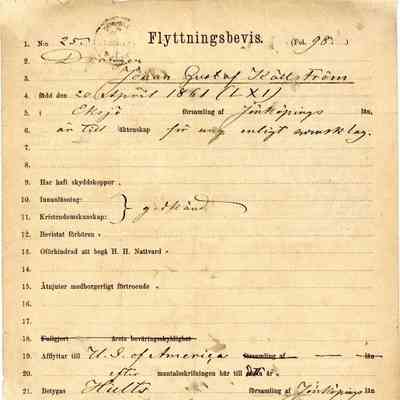 1. N:o 25. Flyttningsbevis. (Fol. 98.)
2. Drängen
3. Johan Gustaf Källström
4. född den 20 April 1861 (LXI)
5. i Eksjö församling af Jönköpings län,
6. är till äktenskap för ung enligt svensk lag.
7.
8.
9. Har haft skyddskoppor
10. Innanläsning: godkänd
11. Kristendomskunskap:
12. Bevistat förhören
13. Oförhindrad att begå H. H. Nattvard
14.
15. Åtnjuter medborgerligt förtroende
16.
17.
18. Fullgjort årets beväringsskyldighet
19. Afflyttar till U.S. of America församling af län
20. efter mantalsskrifningen här till år.
21. Betygas Hults församling af Jönköpings län